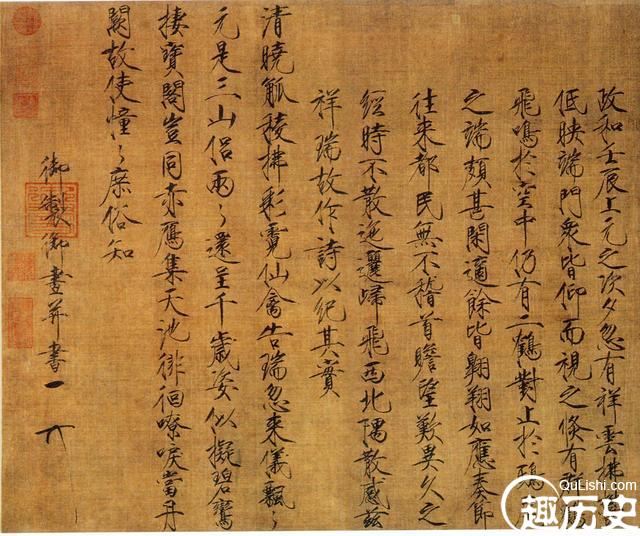 政和壬辰上元之次夕忽有祥雲拂
低映端門衆皆仰而視之倏有群
飛鳴於空中仍有二鶴對止於鴟
之端頗甚閑適餘皆翱翔如應奏節
往來都民無不稽首瞻望歎異久之
經時不散迤邐歸飛西北隅散感茲
祥瑞故作詩以紀其實
清曉觚稜拂彩霓仙禽告瑞忽來儀飄〻
元是三山侶兩〻還呈千歲姿似擬碧鸞
棲寶閣豈同赤鴈集天池徘徊嘹唳當丹
闕故使憧〻庶俗知
御製御畫并書
QuLishi.com
趣历史